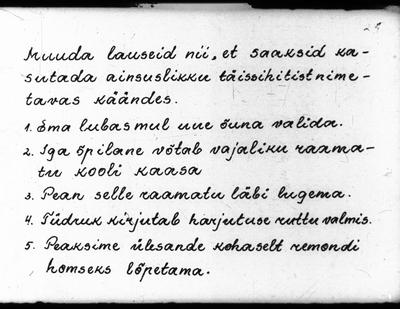 Muuda lauseid nii, et saaksid ka-
sutada ainsuslikku täissihitist nime-
tavas käändes.
1. Ema lubas mul uue õuna valida.
2. Iga õpilane võtab vajaliku raama-
tu kooli kaasa
3. Pean selle raamatu läbi lugema.
4. Tüdruk kirjutab harjutuse ruttu valmis.
5. Peaksime ülesande kohaselt remondi
homseks lõpetama.